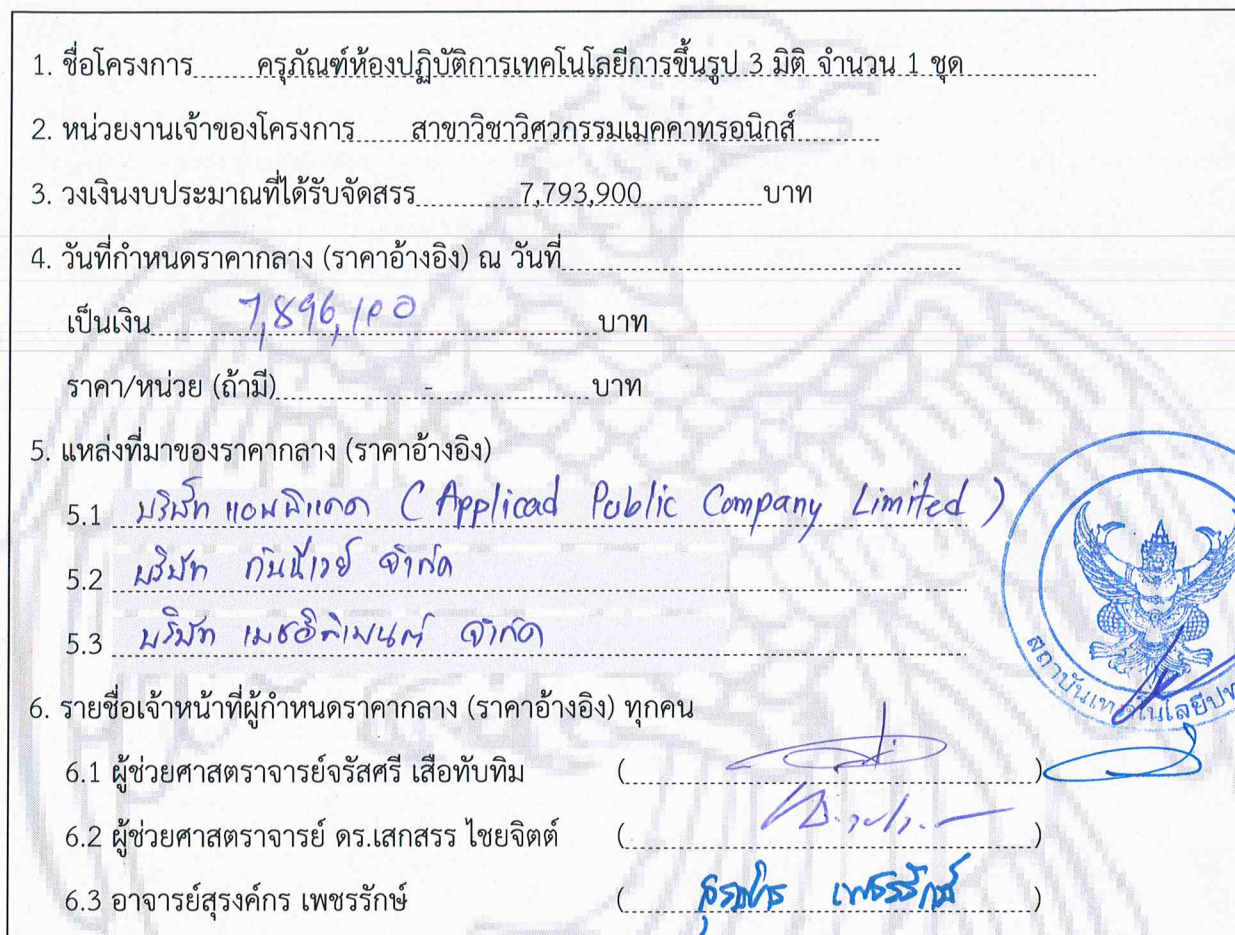 1. ชื่อโครงการ ครุภัณฑ์ห้องปฏิบัติการเทคโนโลยีการขึ้นรูป 3 มิติ จำนวน 1 ชุด
2. หน่วยงานเจ้าของโครงการ สาขาวิชาวิศวกรรมเมคคาทรอนิกส์
3. วงเงินงบประมาณที่ได้รับจัดสรร 7,793,900 บาท
4. วันที่กำหนดราคากลาง (ราคาอ้างอิง) ณ วันที่
เป็นเงิน 7,896,100 บาท
ราคา/หน่วย (ถ้ามี) - บาท
5. แหล่งที่มาของราคากลาง (ราคาอ้างอิง)
5.1 บริษัท แอพพลิแคด (Applicad Public Company Limited)
5.2 บริษัท จำกัด
5.3 บริษัท จำกัด
6. รายชื่อเจ้าหน้าที่ผู้กำหนดราคากลาง (ราคาอ้างอิง) ทุกคน
6.1 ผู้ช่วยศาสตราจารย์จรัสศรี เสือทับทิม ( )
6.2 ผู้ช่วยศาสตราจารย์ ดร.เสกสรร ไชยจิตต์ ( )
6.3 อาจารย์สุรงค์กร เพชรรักษ์ ( สุรงค์กร เพชรรักษ์ )